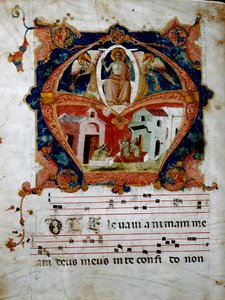 AD TE leuaui animam me
am deus meus in te confido non